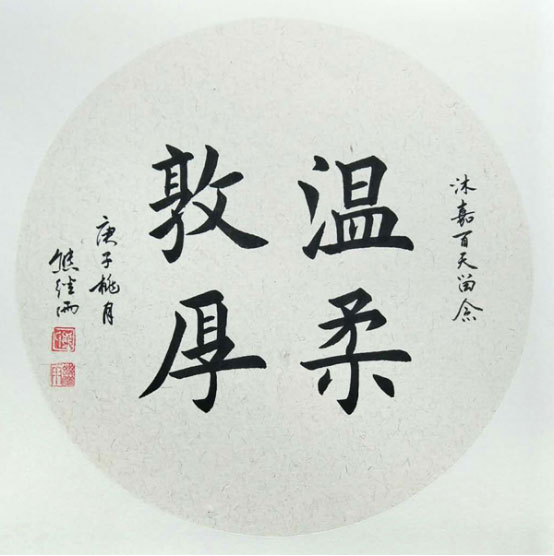 沐嘉百天留念
温柔
敦厚
庚子桃月
熊经雨